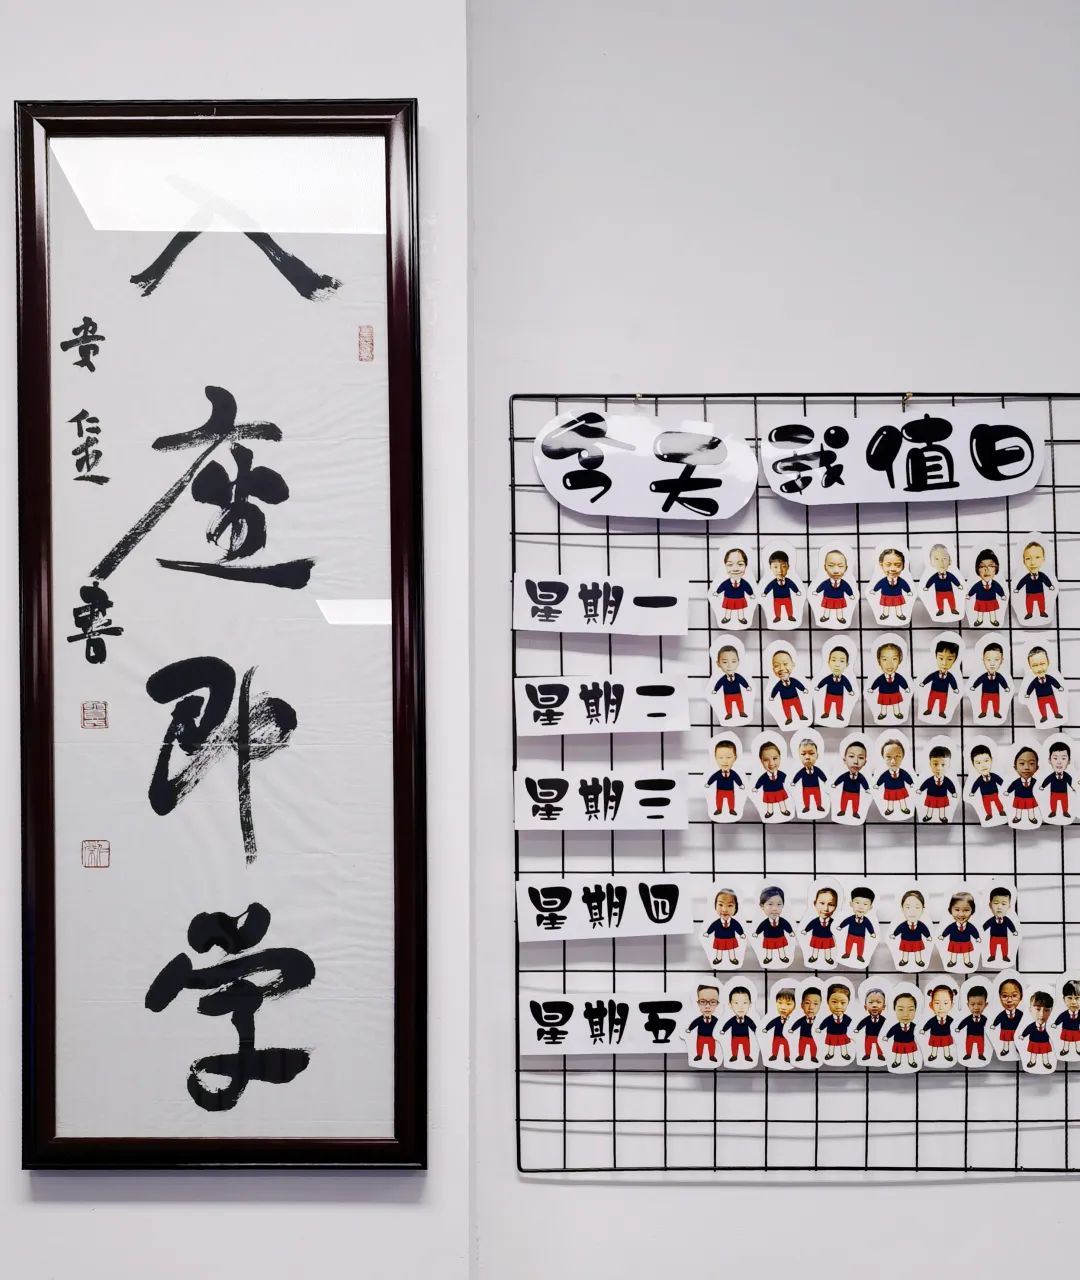 入座即学
贵仁書
今天我值日
星期一
星期二
星期三
星期四
星期五